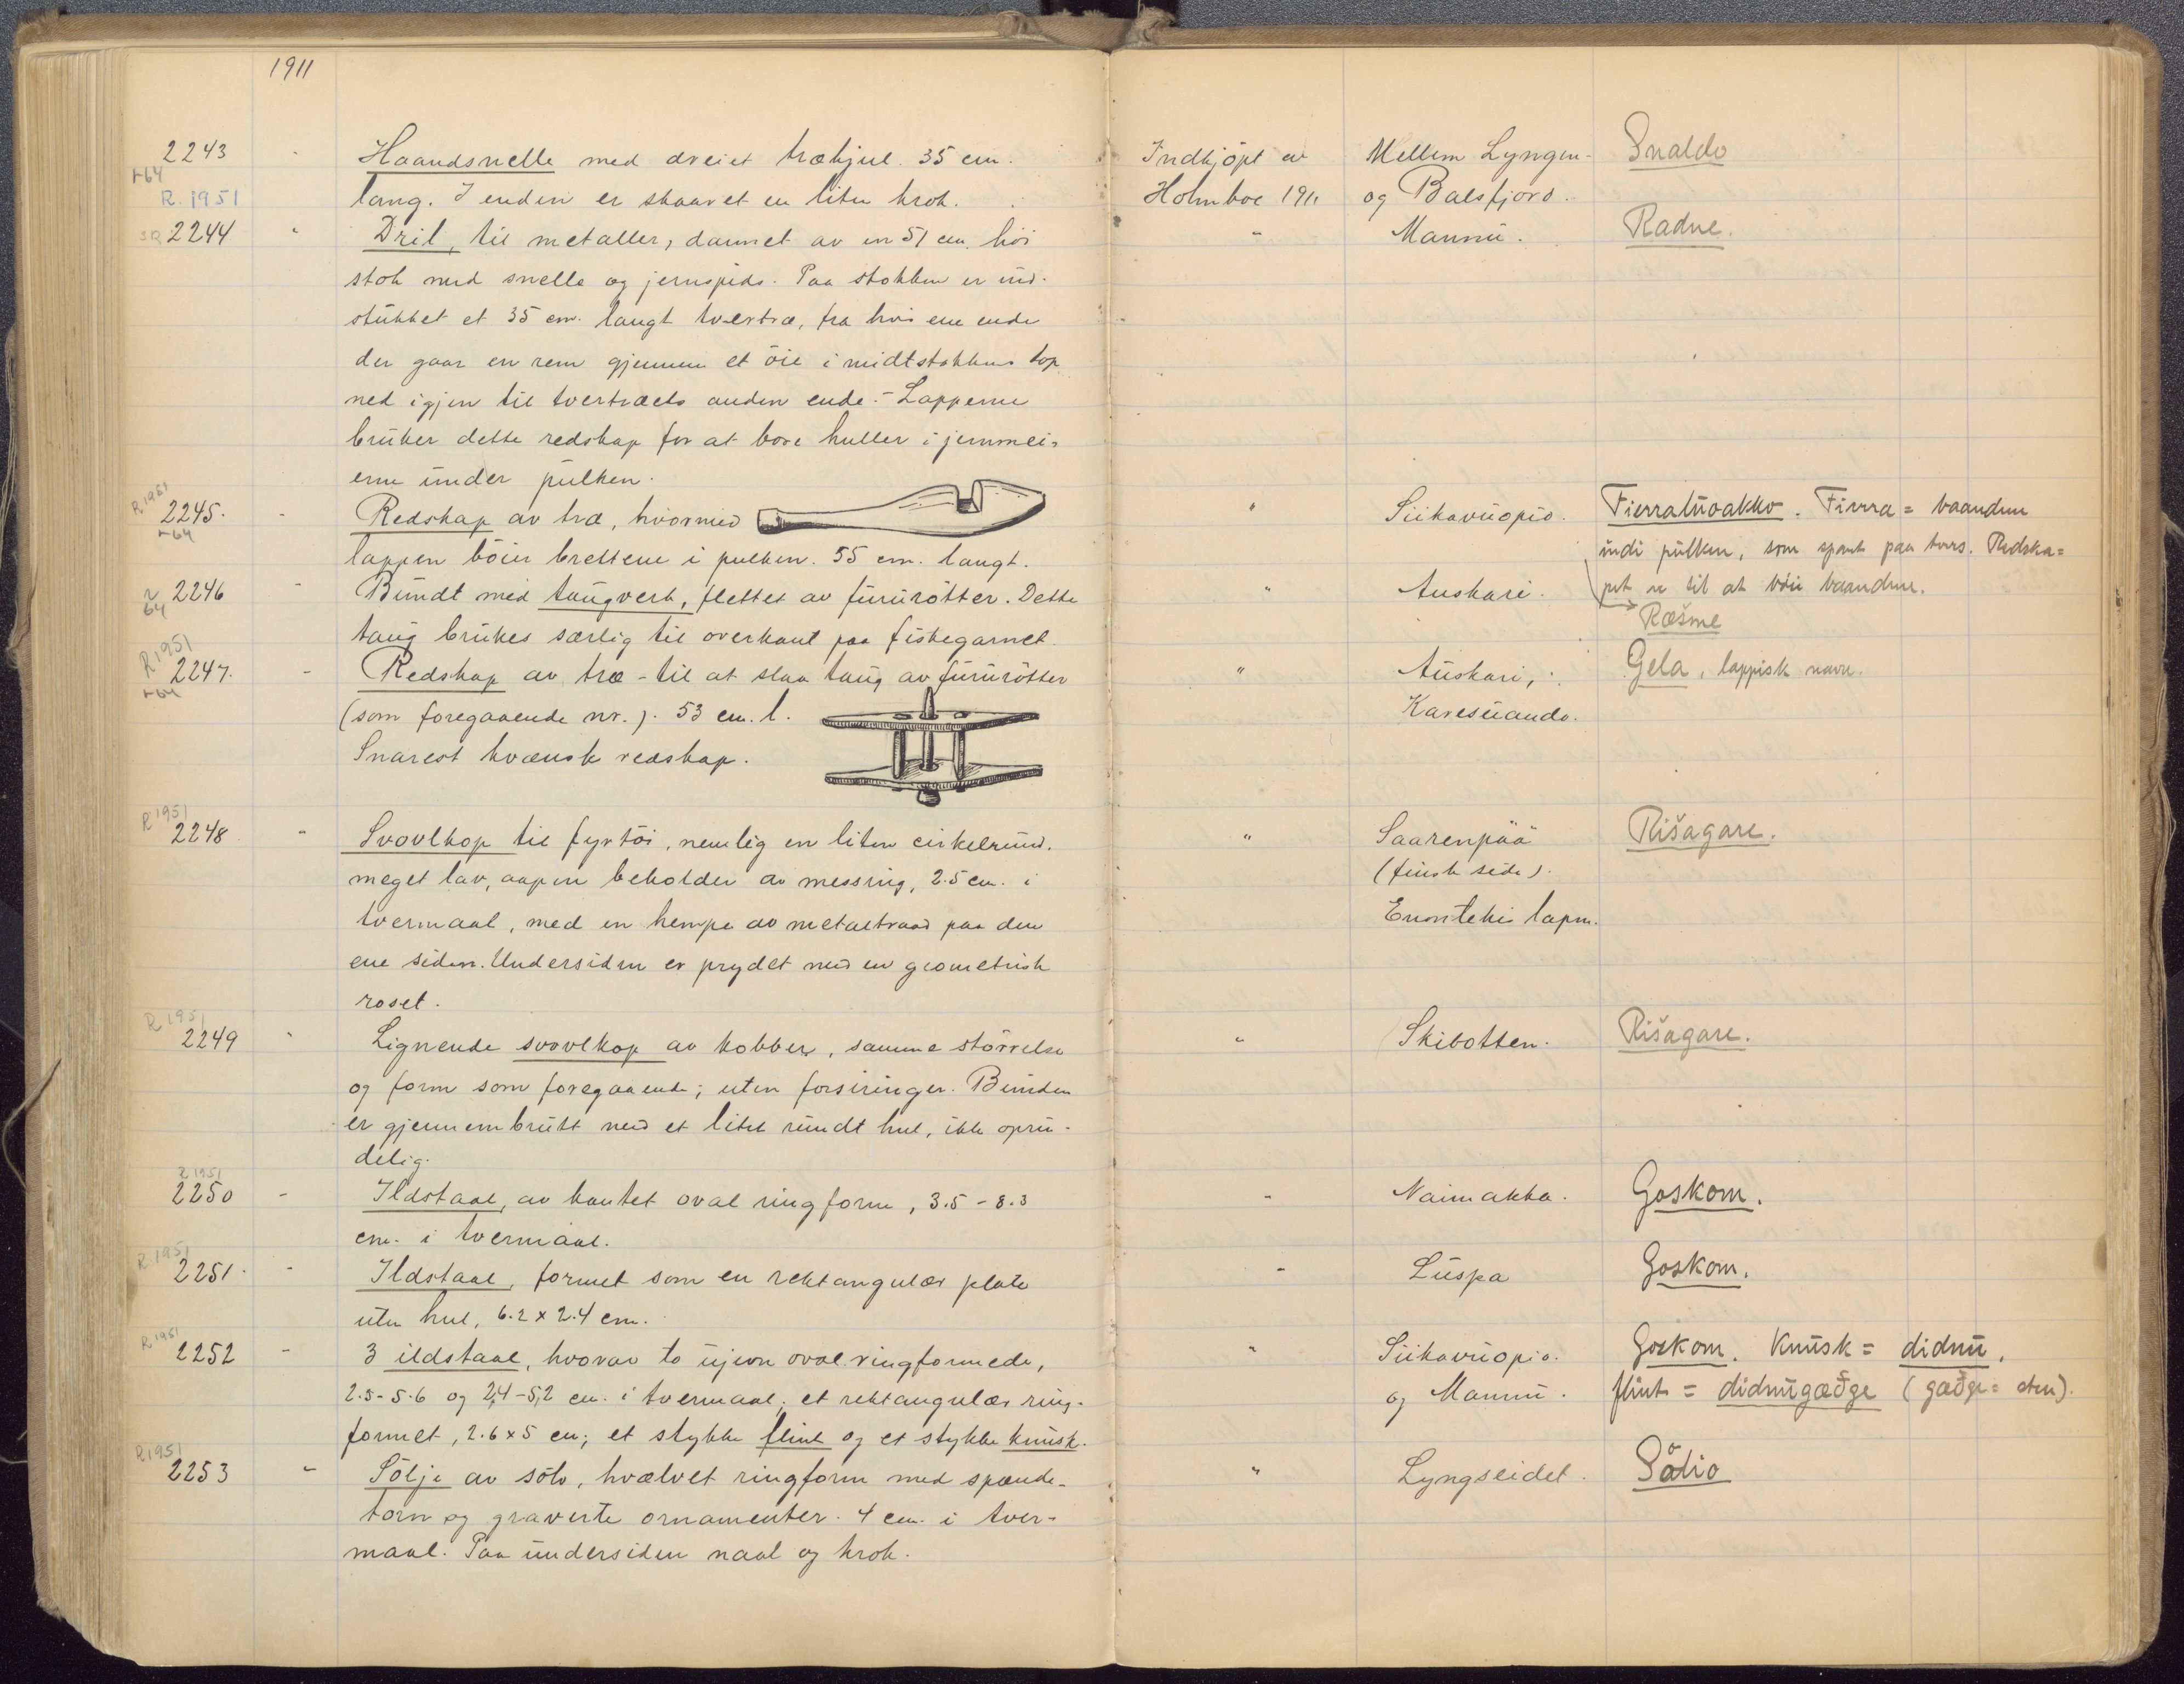 1911
2243 - Haandsnelle med dreiet træhjul. 35 cm. Indkjöpt av Mellem Lyngen- Snaldo
r 64
R. 1951 lang. I enden er skaaret en liten krok. Holmboe 1911 og Balsfjord.
2244 " Dril, til metaller, dannet av en 51 cm. höi " Mannu. Radne.
stok med snelle og jernspids. Paa stokken er ind-
stukket et 35 cm. langt tvertræ, fra hvis ene ende
der gaar en rem gjennem et öie i midtstokkens top
ned igjen til tvertræets anden ende. - Lapperne
bruker dette redskap for at bore huller i jernmei-
erne under pulken.
R 1951
2245. - Redskap av træ, hvormed " Siikavuopio. Fierraluoakko. Fierra = baandene
r 64
lappen böier brettene i pulken. 55 cm. langt. indi pulken, som spant paa tvers. Redska=
pet er til at böie baandene.
r 64 2246 Bundt med taugverk, flettet av fururötter. Dette " Auskari. Ræšme
taug brukes særlig til overkant paa fiskegarnet.
R 1951
2247. - Redskap av træ - til at slaa taug av fururötter " Auskari, Gela, lappisk navn.
r 64
(som foregaaende nr.). 53 cm. l. Karesuando.
Snarest kvænsk redskap.
R 1951
2248 " Svovlkop til fyrtöi, nemlig en liten cirkelrund, " Saarenpää Rišagare.
meget lav, aapen beholder av messing, 2.5 cm. i (finsk side).
tvermaal, med en hempe av metaltraad paa den Enontekis lapm.
ene siden. Undersiden er prydet med en geometrisk
roset.
R 1951
2249 " Lignende svovlkop av kobber, samme störrelse " Skibotten. Rišagare.
og form som foregaaende; uten forsiringer. Bunden
er gjennembrutt med et litet rundt hul, ikke oprin-
delig.
R 1951
2250 - Ildstaal, av kantet oval ringform, 3.5 - 8.3 - Naimakka. Goskom.
cm. i tvermaal.
R 1951
2251. - Ildstaal, formet som en rektangulær plate - Luspa Goskom.
uten hul, 6.2 x 2.4 cm.
R 1951
2252 - 3 ildstaal, hvorav to ujevn oval ringformede, " Siikavuopio. Goskom. Knusk = didnu.
2.5 - 5.6 og 2,4 - 5,2 cm. i tvermaal; et rektangulær ring- og Mannu. flint = didnugæđge (gæđge = sten).
formet, 2.6 x 5 cm; et stykke flint og et stykke knusk.
R 1951
2253 " Sölje av sölv, hvælvet ringform med spænde- " Lyngseidet. Sölio
torn og graverte ornamenter. 4 cm. i tver-
maal. Paa undersiden naal og krok.